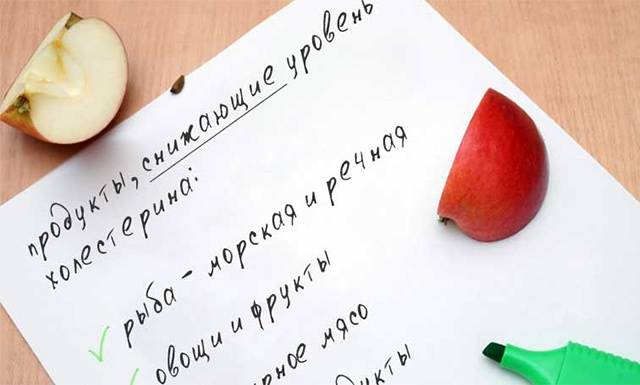 продукты, снижающие уровень
холестерина:
рыба - морская и речная
овощи и фрукты
мясо